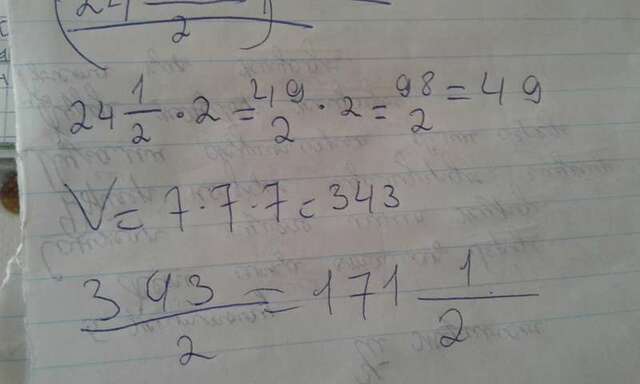 24 1/2 · 2 = 49/2 · 2 = 98/2 = 49
V = 7 · 7 · 7 = 343
343/2 = 171 1/2